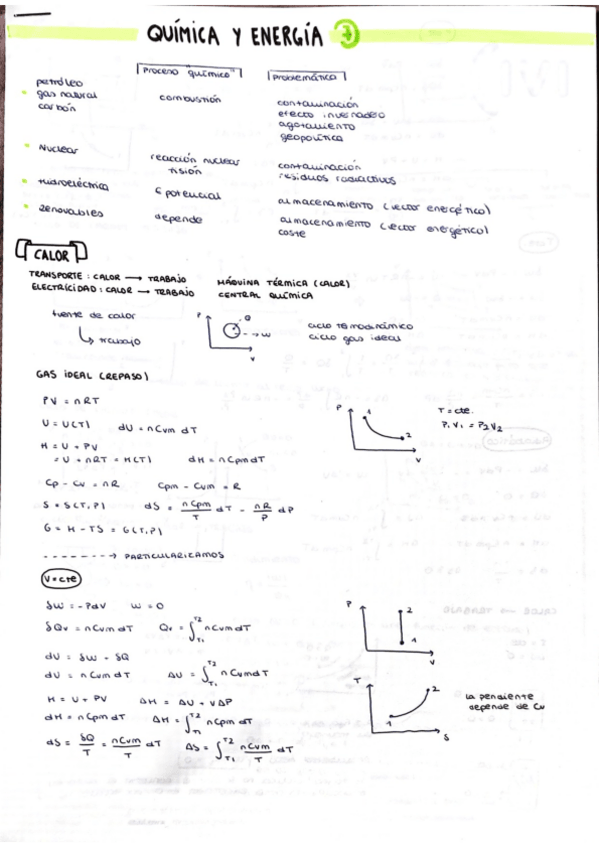 QUÍMICA Y ENERGÍA 7
Proceso "químico" Problemática
petróleo
gas natural
carbón
combustión
contaminación
efecto invernadeo
agotamiento
geopolítica
Nuclear
reacción nuclear
fisión
contaminación
residuos radiactivos
Hidroeléctrica
E potencial
almacenamiento (vector energético)
Renovables
depende
almacenamiento (vector energético)
coste
CALOR
TRANSPORTE : CALOR → TRABAJO MÁQUINA TÉRMICA (CALOR)
ELECTRICIDAD : CALOR → TRABAJO CENTRAL QUÍMICA
fuente de calor
↳ trabajo
P
Q
W
V
ciclo termodinámico
ciclo gas ideal
GAS IDEAL (REPASO)
PV = nRT
U = U(T) dU = nCvm dT
H = U + PV
= U + nRT = H(T) dH = nCpm dT
Cp - Cv = nR Cpm - Cvm = R
S = S(T,P) dS = nCpm/T dT - nR/P dP
G = H - TS = G(T,P)
P
1
2
V
T = cte.
P1V1 = P2V2
-------→ PARTICULARIZAMOS
V = cte
δW = -PdV W = 0
δQv = nCvm dT Qv = ∫T1T2 nCvm dT
dU = δW - δQ
dU = nCvm dT ΔU = ∫T1T2 nCvm dT
H = U + PV ΔH = ΔU + VΔP
dH = nCpm dT ΔH = ∫T1T2 nCpm dT
dS = δQ/T = nCvm/T dT ΔS = ∫T1T2 nCvm/T dT
P
2
1
V
T
2
1
S
la pendiente
depende de Cv